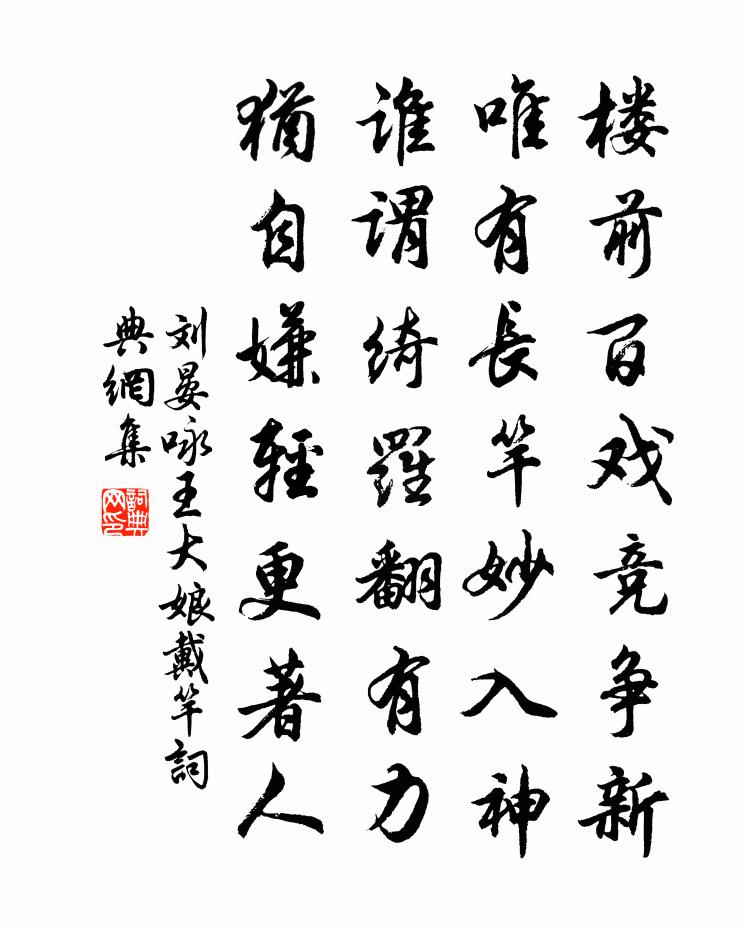 楼前百戏竞争新
唯有長竿妙入神
谁谓绮羅翻有力
猶自嫌輕更著人
刘晏咏王大娘戴竿詞
典網集
詞典
网印